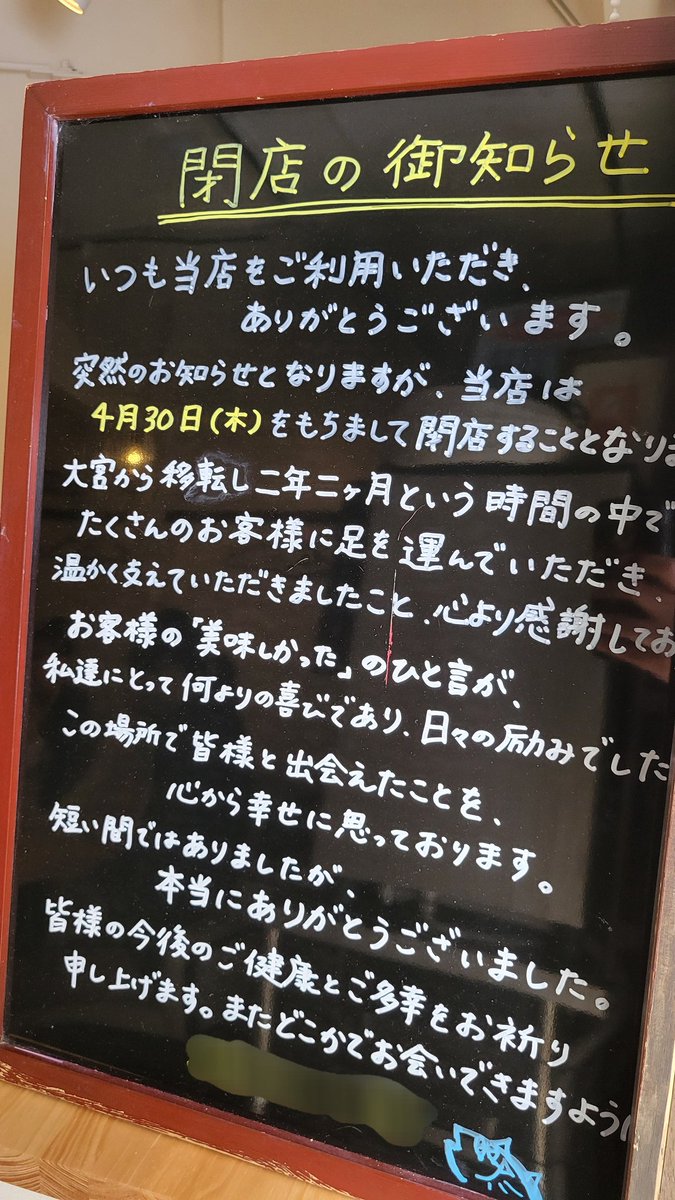 閉店の御知らせ
いつも当店をご利用いただき、
ありがとうございます。
突然のお知らせとなりますが、当店は
4月30日(木)をもちまして閉店することとなりま
大宮から移転し二年二ヶ月という時間の中で
たくさんのお客様に足を運んでいただき、
温かく支えていただきましたこと、心より感謝してお
お客様の「美味しかった」のひと言が、
私達にとって何よりの喜びであり、日々の励みでした
この場所で皆様と出会えたことを、
心から幸せに思っております。
短い間ではありましたが、
本当にありがとうございました。
皆様の今後のご健康とご多幸をお祈り
申し上げます。またどこかでお会いできますように